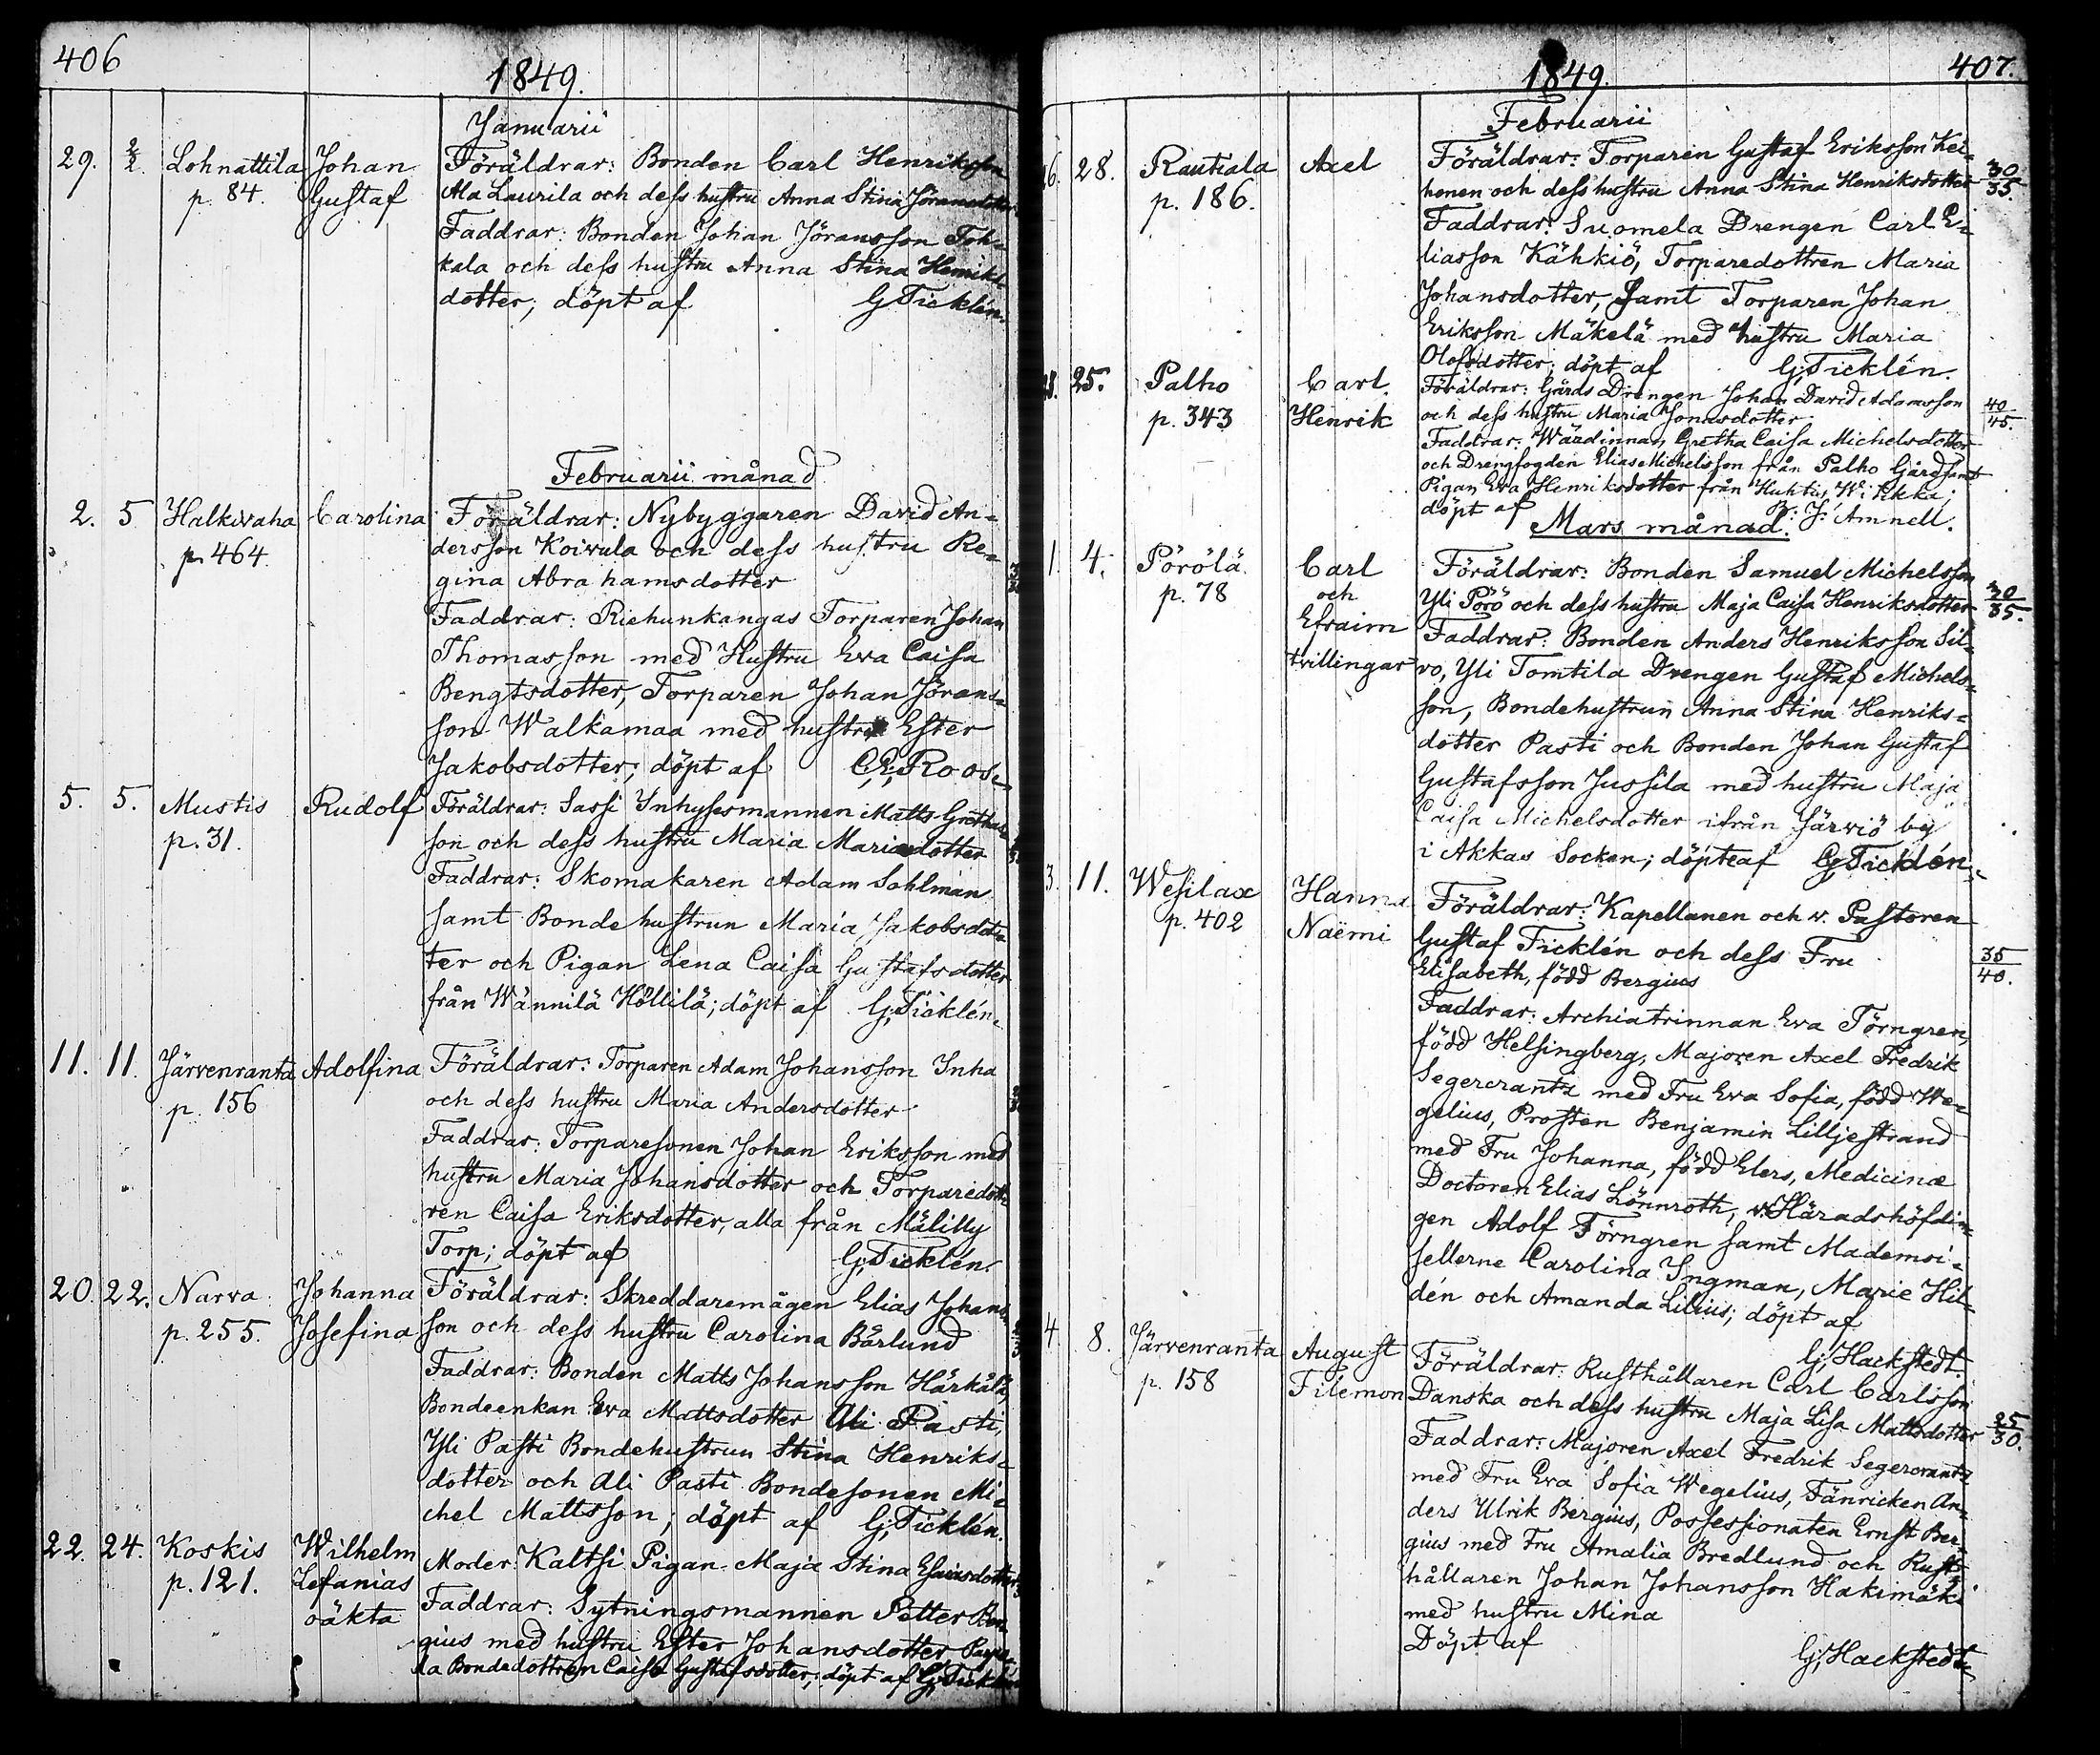 406
1849.
Januarii
29. 2/2. Lohnattila Johan Föräldrar: Bonden Carl Henriksson
p. 84. Gustaf Ala Laurila och dess hustru Anna Stina Jöransdotter
Faddrar: Bonden Johan Jöransson Toh-
kala och dess hustru Anna Stina Henriks
dotter; döpt af G. Ticklén.
Februarii månad
2. 5. Halkivaha Carolina Föräldrar: Nybyggaren David An-
p. 464. dersson Koivula och dess hustru Re-
gina Abrahamsdotter
Faddrar: Riehunkangas Torparen Johan
Thomasson med Hustru Eva Caisa
Bengtsdotter, Torparen Johan Jörans-
son Walkamaa med hustru Ester
Jakobsdotter; döpt af C. E. Roos.
5. 5. Mustis Rudolf Föräldrar: Sassi Inhysesmannen Matts Grethas
p. 31. son och dess hustru Maria Mariasdotter
Faddrar: Skomakaren Adam Sahlman
samt Bonde hustrun Maria Jakobsdot-
ter och Pigan Lena Caisa Gustafsdotter
från Wännilä Höllilä; döpt af G. Ticklén.
11. 11. Järvenranta Adolfina Föräldrar: Torparen Adam Johansson Inha
p. 156 och dess hustru Maria Andersdotter
Faddrar: Torparesonen Johan Eriksson med
hustru Maria Johansdotter och Torparedott-
ren Caisa Eriksdotter, alla från Mälilly
Torp; döpt af G. Ticklén.
20. 22. Narva Johanna Föräldrar: Skreddaremågen Elias Johans
p. 255. Josefina son och dess hustru Carolina Bärlund
Faddrar: Bonden Matts Johansson Härkälä,
Bondeenkan Eva Mattsdotter Ali Pasti,
Yli Pasti Bondehustrun Stina Henriks-
dotter och Ali Pasti Bondesonen Mi-
chel Mattsson; döpt af G. Ticklén.
22. 24. Koskis Wilhelm Moder: Kaltsi Pigan Maja Stina Esaiasdotter
p. 121. Zefanias Faddrar: Sytningsmannen Petter Ber-
oäkta gius med hustru Ester Johansdotter
la Bondedottren Caisa Gustafsdotter; döpt af G. Ticklén
407.
1849.
Februarii
26. 28. Rautiala Axel Föräldrar: Torparen Gustaf Eriksson Kei-
p. 186. honen och dess hustru Anna Stina Henriksdotter 30/35.
Faddrar: Suomela Drengen Carl E-
liasson Kähkiö, Torparedottren Maria
Johansdotter, samt Torparen Johan
Eriksson Mäkelä med hustru Maria
Olofsdotter; döpt af G. Ticklén.
25. Palho Carl Föräldrar: Gårds Drengen Johan David Adamsson
p. 343 Henrik och dess hustru Maria Jonasdotter 40/45.
Faddrar: Wärdinnan Gretha Caisa Michelsdotter
och Drengfogden Elias Michelsson från Palho Gård samt
Pigan Eva Henriksdotter från Huhtis, Wikka;
döpt af J. Amnell.
Mars månad.
1. 4. Pörölä Carl Föräldrar: Bonden Samuel Michelsson
p. 78 och Yli Pörö och dess hustru Maja Caisa Henriksdotter 30/35.
Efraim Faddrar: Bonden Anders Henriksson Sil-
tvillingar vo, Yli Tomtila Drengen Gustaf Michels-
son, Bondehustrun Anna Stina Henriks-
dotter Pasti och Bonden Johan Gustaf
Gustafsson Jussila med hustru Maja
Caisa Michelsdotter ifrån Järviö by
i Akkas Socken; döpte af G. Ticklén.
3. 11. Wesilax Hanna Föräldrar: Kapellanen och v. Pastoren
p. 402 Naëmi Gustaf Ticklén och dess Fru
Elisabeth, född Bergius 35/40.
Faddrar: Archiatrinnan Eva Törngren,
född Helsingberg, Majoren Axel Fredrik
Segercrantz med Fru Eva Sofia, född We-
gelius, Prosten Benjamin Lilljestrand
med Fru Johanna, född Elers, Medicinæ
Doctoren Elias Lönnroth, v. Häradshöfdin-
gen Adolf Törngren samt Mademoi-
sellerne Carolina Ingman, Marie Hil-
dén och Amanda Lilius; döpt af
G. Hackstedt.
4. 8. Järvenranta August Föräldrar: Rusthållaren Carl Carlsson
p. 158 Filemon Danska och dess hustru Maja Lisa Mattsdotter 25/30.
Faddrar: Majoren Axel Fredrik Segercrantz
med Fru Eva Sofia Wegelius, Fänricken An-
ders Ulrik Bergius, Possessionaten Ernst Ber-
gius med Fru Amalia Bredlund och Rust-
hållaren Johan Johansson Hakimäki
med hustru Mina
Döpt af
G. Hackstedt